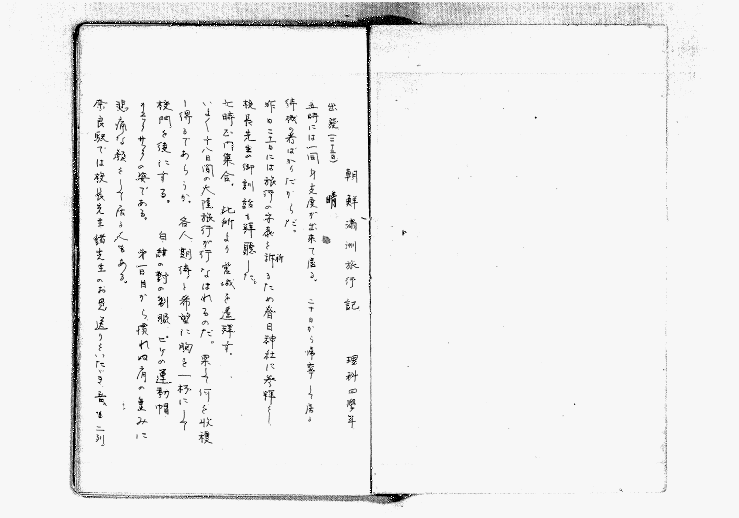 朝鮮満洲旅行記　理科四學年
出発(三十一日)　晴
五時には一同身支度が出来て居る。二十日から帰寮して居る
待機の者ばかりだからだ。
昨日二十日には旅行の安義を祈るため春日神社に参拝し
校長先生の御訓話を拝聴した。
七時正門集合。此所より宮城を遥拝す。
いよいよ十八日間の大陸旅行が行なはれるのだ。果して何を收穫
し得るであらうか、各人期待と希望に胸を一杯にして
校門を後にする。白線の對の制服ピケの運動帽
リュックサックの姿である。第一日目から慣れぬ肩の重みに
悲痛な顔をして居る人もある。
奈良駅では校長先生諸先生のお見送りをいただき 二列